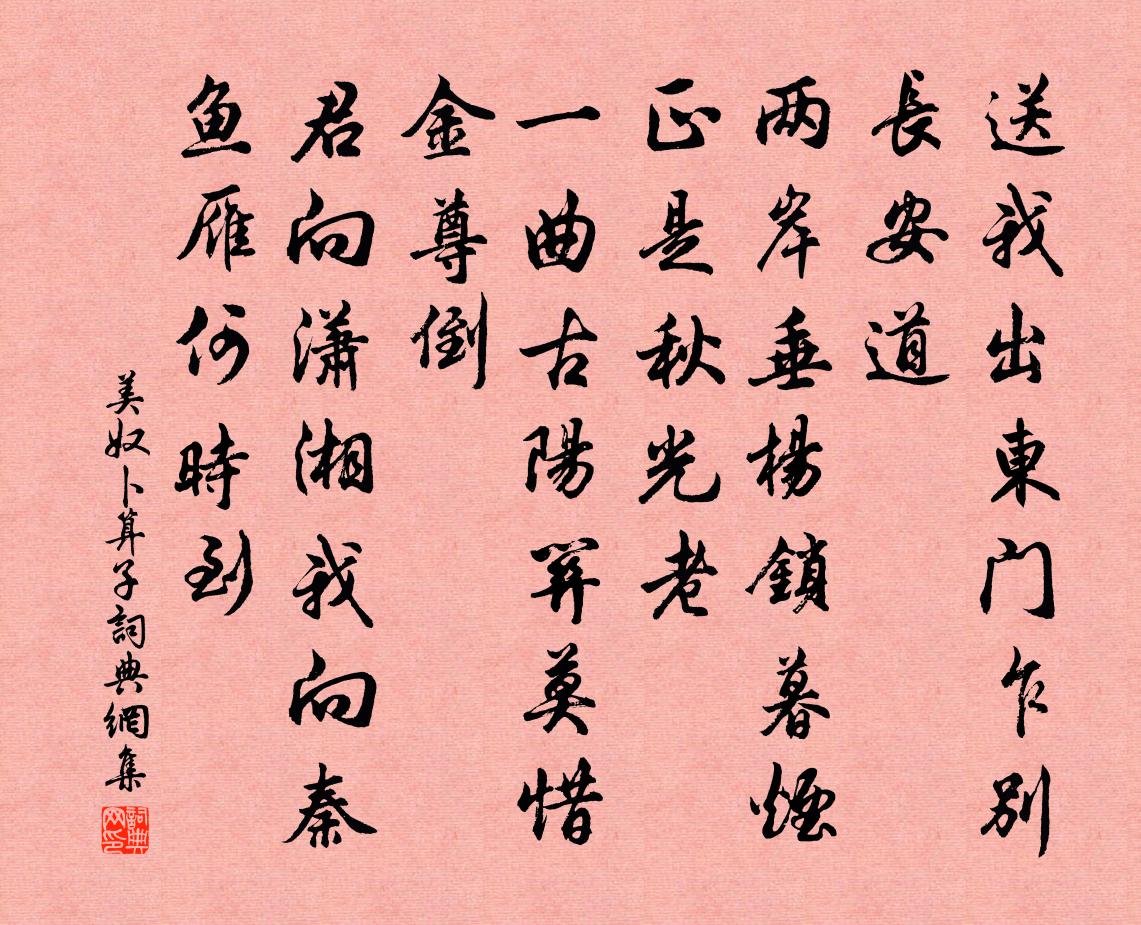 送我出東门乍别
長安道
两岸垂楊鎖暮煙
正是秋光老
一曲古陽関莫惜
金尊倒
君向潇湘我向秦
鱼雁何時到
美奴卜算子詞典網集
詞典网印